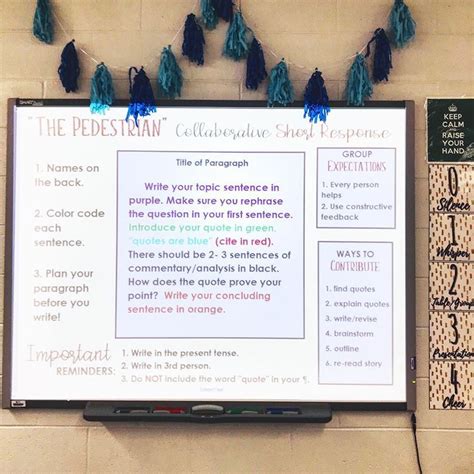 "THE PEDESTRIAN" Collaborative Short Response
1. Names on
the back.
2. Color code
each
sentence.
3. Plan your
paragraph
before you
write!
Title of Paragraph
Write your topic sentence in
purple. Make sure you rephrase
the question in your first sentence.
Introduce your quote in green,
"quotes are blue" (cite in red).
There should be 2- 3 sentences of
commentary/analysis in black.
How does the quote prove your
point? Write your concluding
sentence in orange.
GROUP
EXPECTATIONS
1. Every person
helps
2. Use constructive
feedback
WAYS TO
CONTRIBUTE
1. find quotes
2. explain quotes
3. write/revise
4. brainstorm
5. outline
6. re-read story
Important
REMINDERS:
1. Write in the present tense.
2. Write in 3rd person.
3. Do NOT include the word "quote" in your ¶.
KEEP
CALM
AND
RAISE
YOUR
HAND
0
Silence
1
Whisper
2
Table/Group
3
Presentation
4
Cheer